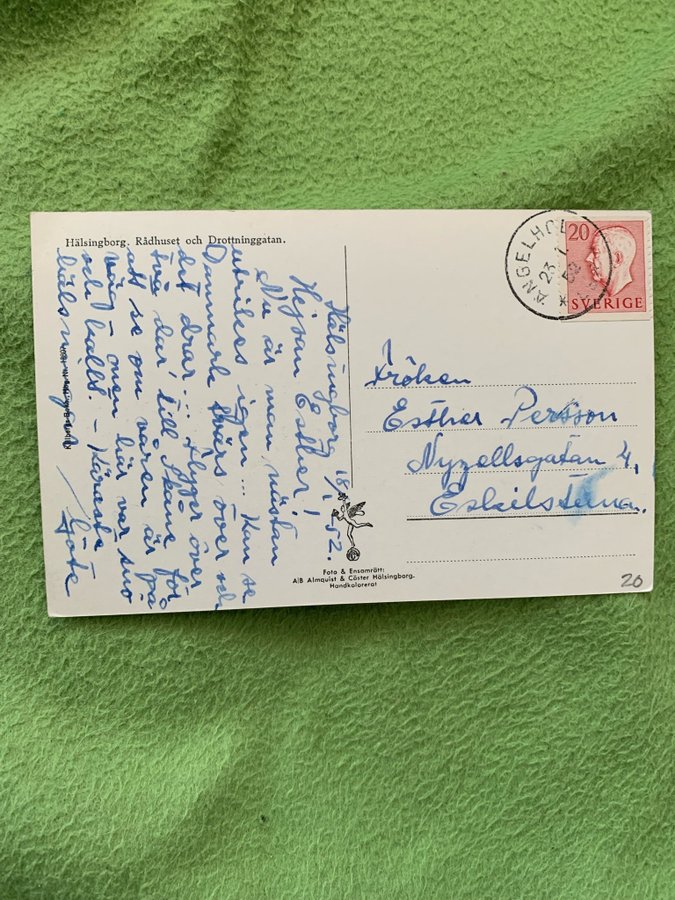 Hälsingborg. Rådhuset och Drottninggatan.
Hälsingborg 18/1 -52.
Hejsan Esther!
Nu är man nästan
utrikes igen... Kan se
Danmark tvärs över och
det drar... över
två dar till Skåne för
att se om våren är på
väg men här var snö
och kallt. - Käraste
hälsningar
Göte
Foto & Ensamrätt:
A/B Almquist & Cöster Hälsingborg.
Handkolorerat
ÄNGELHOL
23 1
52
20
SVERIGE
Fröken
Esther Persson
Nyzellsgatan 4,
Eskilstuna.
20